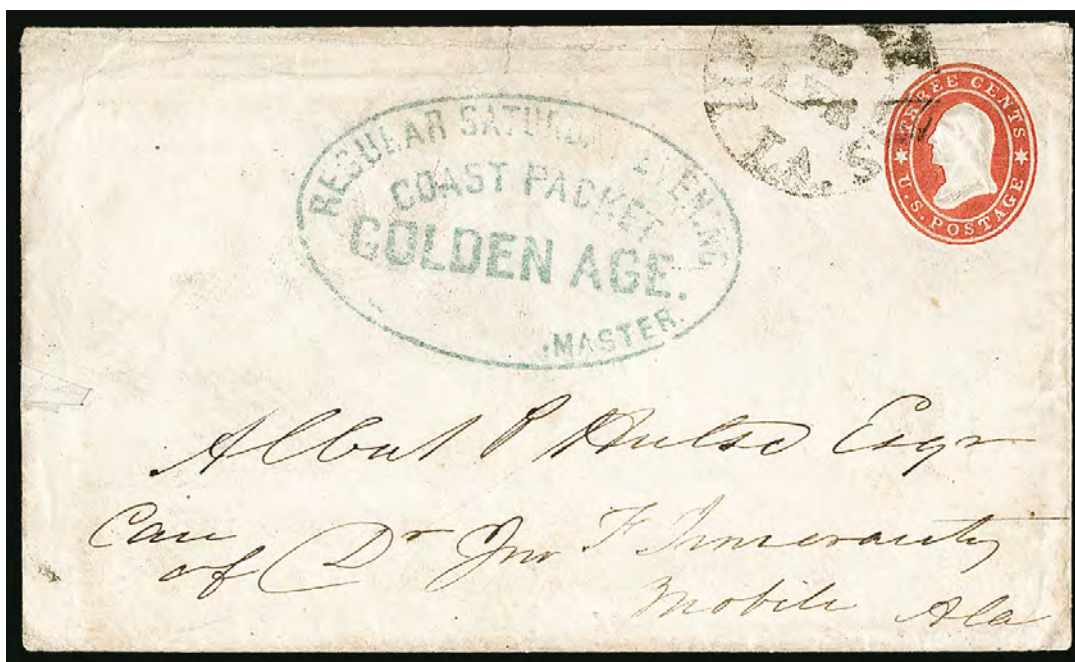 REGULAR SATURDAY EVENING
COAST PACKET
GOLDEN AGE.
MASTER.
THREE CENTS
U.S. POSTAGE
LA.
Albert P Hulse Esqr
Care
of Dr Jno F Innerarity
Mobile Ala